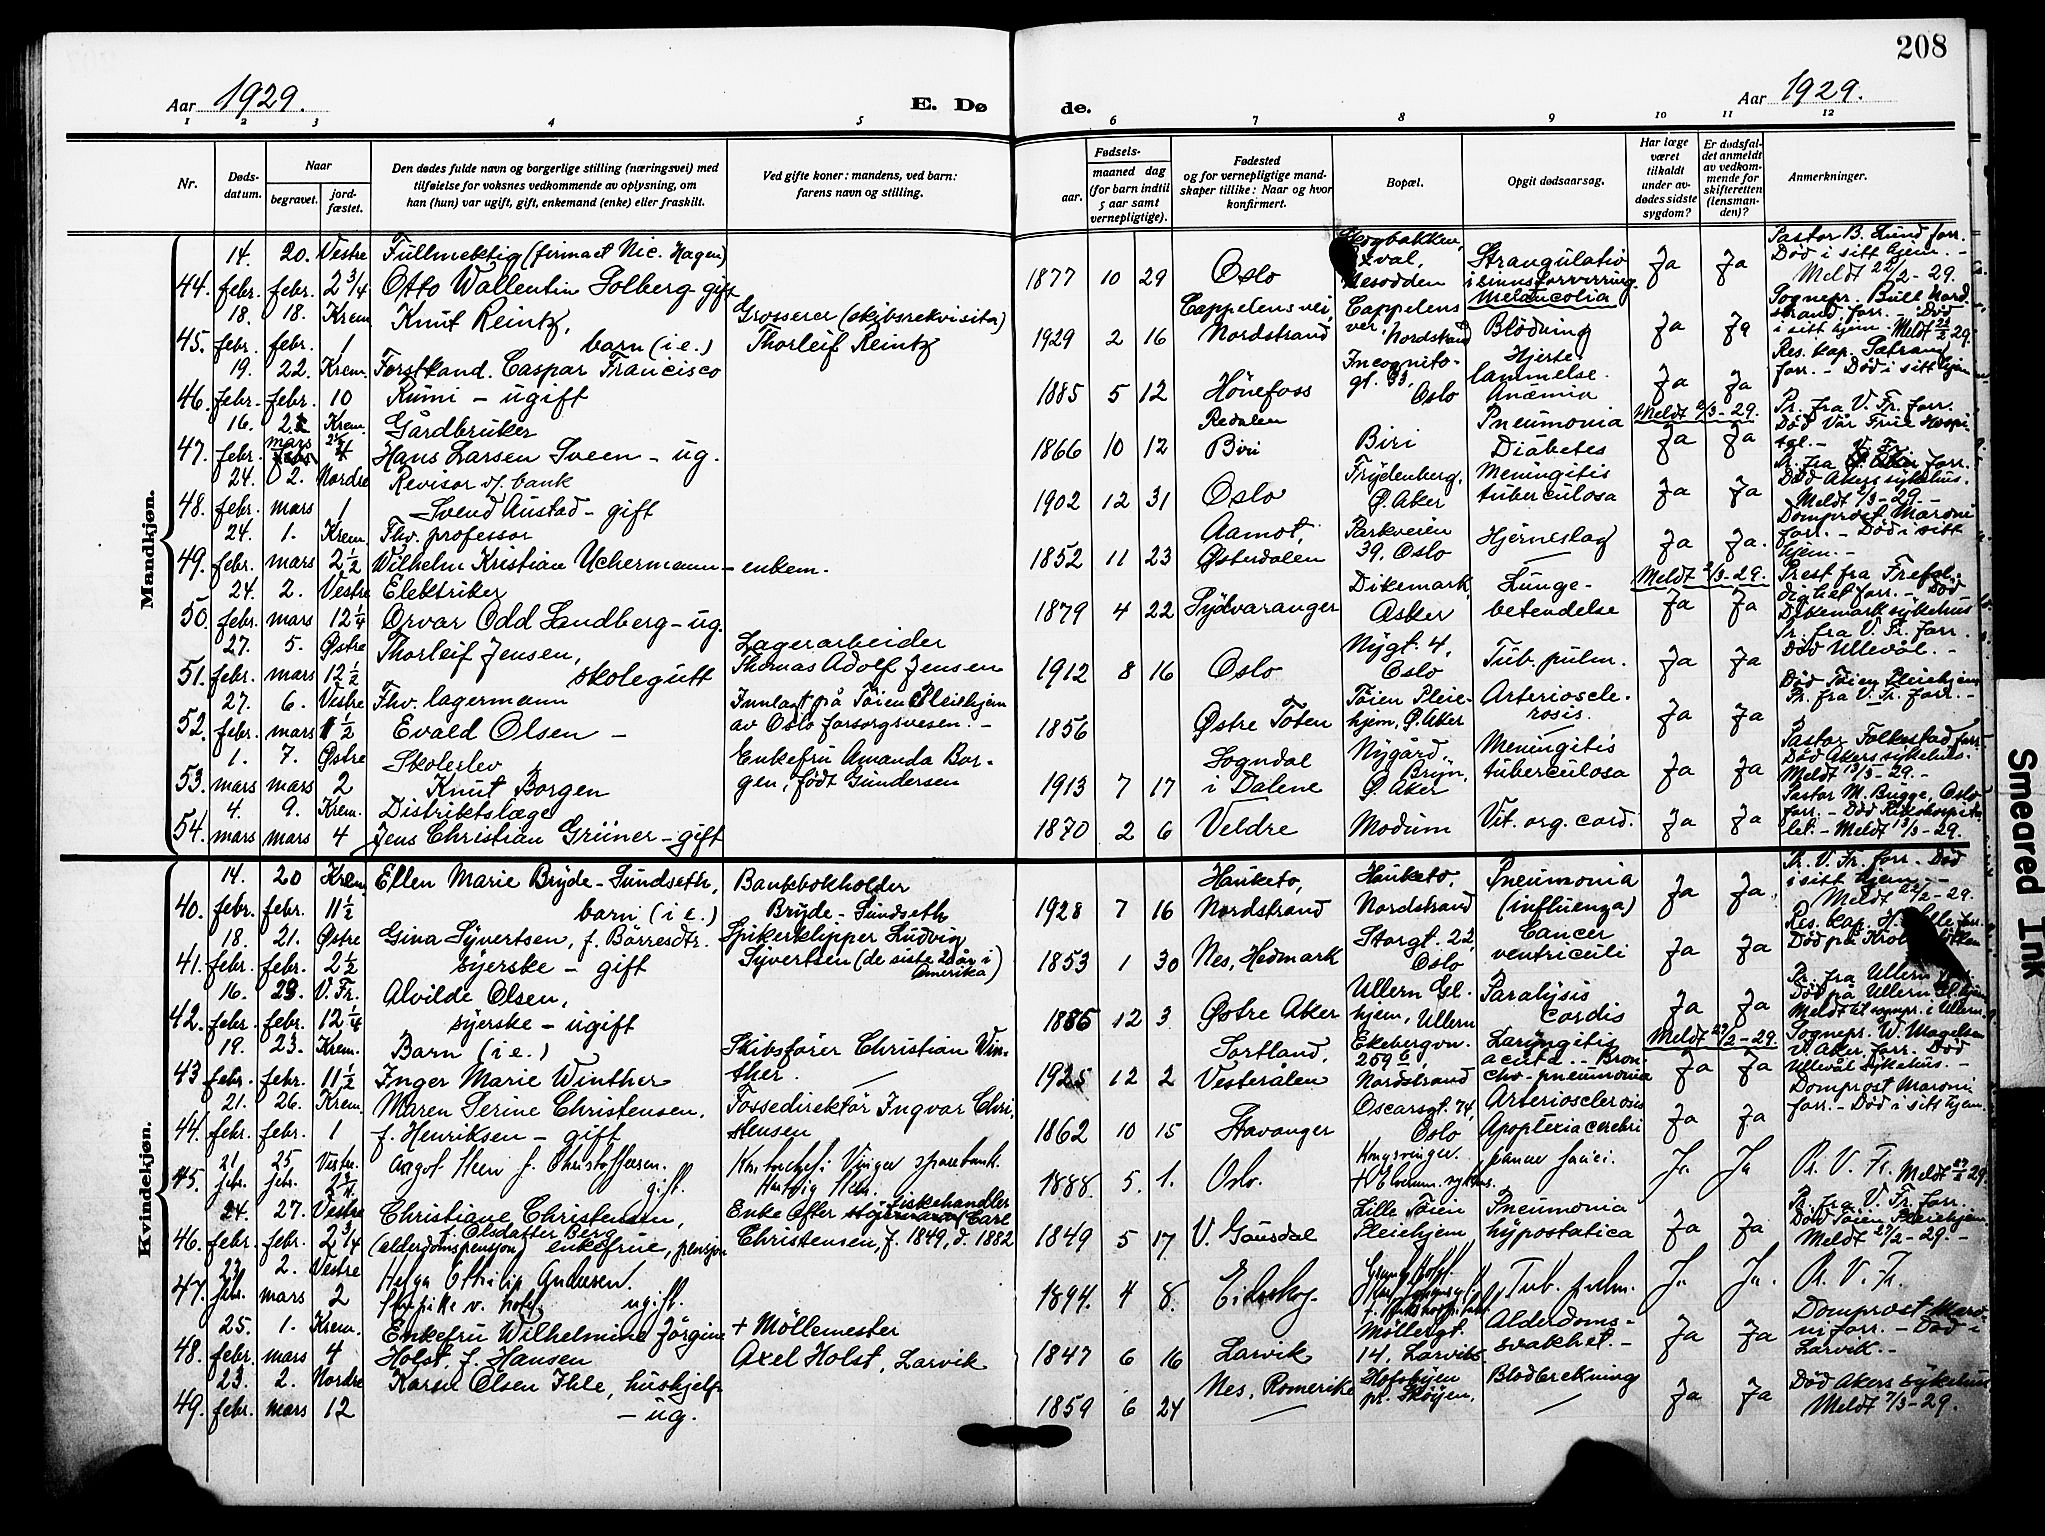 208
Aar 1929.
E. Dø de.
Aar 1929.
1 2 3 4 5 6 7 8 9 10 11 12
Nr.
Døds-
datum.
Naar
begravet.
jord-
fæstet.
Den dødes fulde navn og borgerlige stilling (næringsvei) med
tilføielse for voksnes vedkommende av oplysning, om
han (hun) var ugift, gift, enkemand (enke) eller fraskilt.
Ved gifte koner: mandens, ved barn:
farens navn og stilling.
Fødsels-
aar.
maaned dag
(for barn indtil
5 aar samt
vernepligtige).
Fødested
og for vernepligtige mand-
skaper tillike: Naar og hvor
konfirmert.
Bopæl.
Opgit dødsaarsag.
Har læge
været
tilkaldt
under av-
dødes sidste
sygdom?
Er dødsfal-
det anmeldt
av vedkom-
mende for
skifteretten
(lensman-
den)?
Anmerkninger.
Mandkjøn.
14. 20. Vestre Fullmektig (firmaet Nic. Hagen) Strangulatio Pastor B. Lund forr.
44. febr. febr. 2 3/4 Otto Wallentin Solberg gift 1877 10 29 Oslo Nesodden i sinnsforvirring Ja Ja Død i sitt hjem. -
Melancolia Meldt 22/2 - 29.
18. 18. Krem. Knut Reintz, Grosserer (skibsrekvisita) Cappelensvei, Cappelens Sognepr. Bull Nord-
45. febr. febr. 1 barn (i e.) Thorleif Reintz 1929 2 16 Nordstrand vei, Nordstrand Blödning Ja Ja strand forr. - Död
i sitt hjem.
19. 22. Krem. Forstkand. Caspar Francisco Incognito- Hjerte-
46. febr. febr. 10 Rumi - ugift 1885 5 12 Hönefoss gt. 33, Oslo lammelse. Anæmia Ja Ja forr. - Död i sitt hjem
16. Krem. Gårdbruker Redalen Pneumonia Meldt /3 - 29. Pr. fra V. Fr. forr.
47. febr. mars Hans Larsen Sveen - ug. 1866 10 12 Biri Biri Diabetes Ja Ja Död Vår Frue Hospi-
tal. -
24. 2. Nordre Revisor v/ bank Frydenberg, Meningitis
48. febr. mars 1 Svend Austad - gift 1902 12 31 Oslo Ö. Aker tuberculosa Ja Ja Död Akers sykehus.
Meldt /3 - 29. -
24. 1. Krem. Fhv. professor Aamot, Parkveien Domprost Maroni
49. febr. mars 2 1/2 Wilhelm Kristian Uchermann - enkem. 1852 11 23 Østerdalen 39, Oslo Hjerneslag Ja Ja. forr. - Död i sitt
hjem. -
24. 2. Vestre Elektriker Dikemark, Lunge- Meldt /3 - 29. Prest fra
50. febr. mars 12 1/4 Orvar Odd Sandberg - ug. 1879 4 22 Sydvaranger Asker betendelse Ja Ja forr. - Död
Dikemark sykehus
27. 5. Østre Thorleif Jensen, Lagerarbeider Nygt. 4, Pr. fra V. Fr. forr.
51. febr. mars 12 1/2 skolegutt Thomas Adolf Jensen 1912 8 16 Oslo Oslo Tub. pulm. Ja Ja Död Ullevål. -
27. 6. Vestre Fhv. lagermann Innlagt på Töien Pleiehjem Töien Pleie- Arterioscle- Död Töien Pleiehjem
52. febr. mars 1 1/2 Evald Olsen - av Oslo forsorgsvesen. - 1856 Østre Toten hjem, Ö. Aker rosis. Ja Ja Pr. fra V. Fr. forr. -
1. 7. Østre Skoleelev Enkefru Amanda Bor- Sogndal Nygård, Meningitis Pastor Folkestad forr.
53. mars mars 2 Knut Borgen gen, født Gundersen 1913 7 17 i Dalene Bryn, Ö. Aker tuberculosa Ja Ja Död Akers sykehus.
Meldt 13/3 - 29. -
4. 9. Krem. Distriktslæge Pastor M. Bugge, Oslo
54. mars mars 4 Jens Christian Grüner - gift 1870 2 6 Veldre Modum Vit. org. cord. Ja Ja forr. - Död Rikshospita-
let. - Meldt 13/3 - 29.
Kvindekjøn.
14. 20 Krem Ellen Marie Bryde-Sundseth, Bankbokholder Hauketo, Hauketo, Pneumonia Pr. V. Fr. forr. Död
40. febr. febr. 11 1/2 barn (i e.) Bryde-Sundseth 1928 7 16 Nordstrand Nordstrand (influenza) Ja Ja. i sitt hjem. -
Meldt 22/2 - 29.
18. 21. Østre Gina Syvertsen, f. Börresdtr. Spikerklipper Ludvig Storgt. 22, Cancer Res. kap.
41. febr. febr. 2 1/2 syerske - gift Syvertsen (de siste 20 år i Amerika) 1853 1 30 Nes, Hedmark Oslo ventriculi Ja Ja Död på
16. 23. V. Fr. Alvilde Olsen, Ullern Gl. Paralysis Pr. fra Ullern
42. febr. febr. 12 1/4 syerske - ugift 1885 12 3 Østre Aker hjem, Ullern cordis Ja Ja Död på Ullern Gl. hjem
Meldt til sognpr. i Ullern.
19. 23. Krem. Barn (i e.) Skibsförer Christian Win- Sortland, Ekebergvn. Laryngitis Meldt 27/2 - 29. Sognepr. W. Magelsen
43 febr. febr. 11 1/2 Inger Marie Winther ther. 1925 12 2 Vesterålen 259 b Nordstrand acuta - Bron-
cho-pneumonia Ja Ja V. Aker forr. Död
Ullevål Sykehus. -
21. 26. Krem Maren Serine Christensen, Fossedirektör Ingvar Chri- Oscarsgt. 74, Arteriosclerosis Domprost Maroni
44. febr. febr. 1 f. Henriksen - gift stensen 1862 10 15 Stavanger Oslo Apoplexia cerebri Ja Ja forr. - Död i sitt hjem.
21 25 Vestre Aagot Steen f. Christoffersen. Vinger sparebank. Kongsvinger.
45. febr. febr. gift. Steen. 1888. 5. 1. Oslo. Ja Ja Pr. V. Fr. Meldt 27/2 29.
24. 27. Vestre Christiane Christensen, Enke efter fiskehandler Carl Lille Töien Pneumonia Pr. fra V. Fr. forr.
46. febr. febr. 2 3/4 f. Olsdatter Berg
(alderdomspensjon) enkefrue, pensjon Christensen, f. 1849, d. 1882 1849 5 17 V. Gausdal Pleiehjem hypostatica Ja Ja Död Töien Pleiehjem
Meldt 27/2 - 29. -
2. Vestre Helga Andersen.
47. febr. mars 2 ugift. 1894. 4 8. Eidskog. Tub. pulm. Ja Ja. Pr. V. Fr.
25. 1. Krem. Enkefru Wilhelmine Jörgine + Möllemester Möllergt. Alderdoms- Domprost Maro-
48. febr. mars 4 Holst f. Hansen Axel Holst, Larvik 1847 6 16 Larvik 14, Larvik svakhet. - Ja Ja ni forr. - Död i
Larvik. -
23. 2. Nordre Karen Olsen Ihle, hushjelp Nes, Romerike Hofsbyen Blodbrekning Död Akers sykehus
49. febr. mars 12 - ug. 1859 6 24 pr. Skøyen, Ja Ja Meldt 7/3 - 29.
Smeared Ink